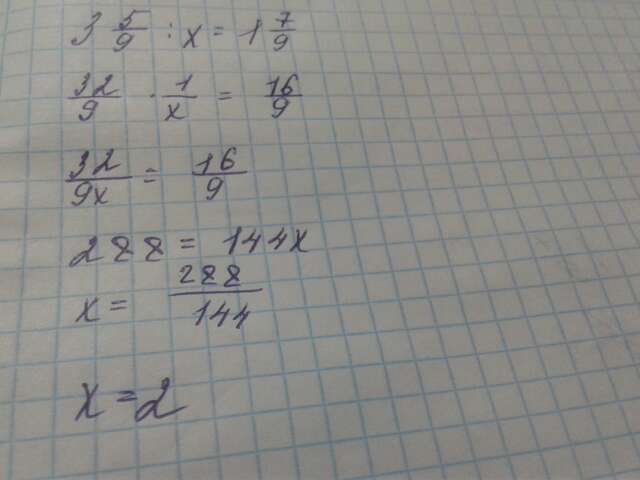 3 5/9 : x = 1 7/9
32/9 · 1/x = 16/9
32/9x = 16/9
288 = 144x
x = 288/144
x = 2